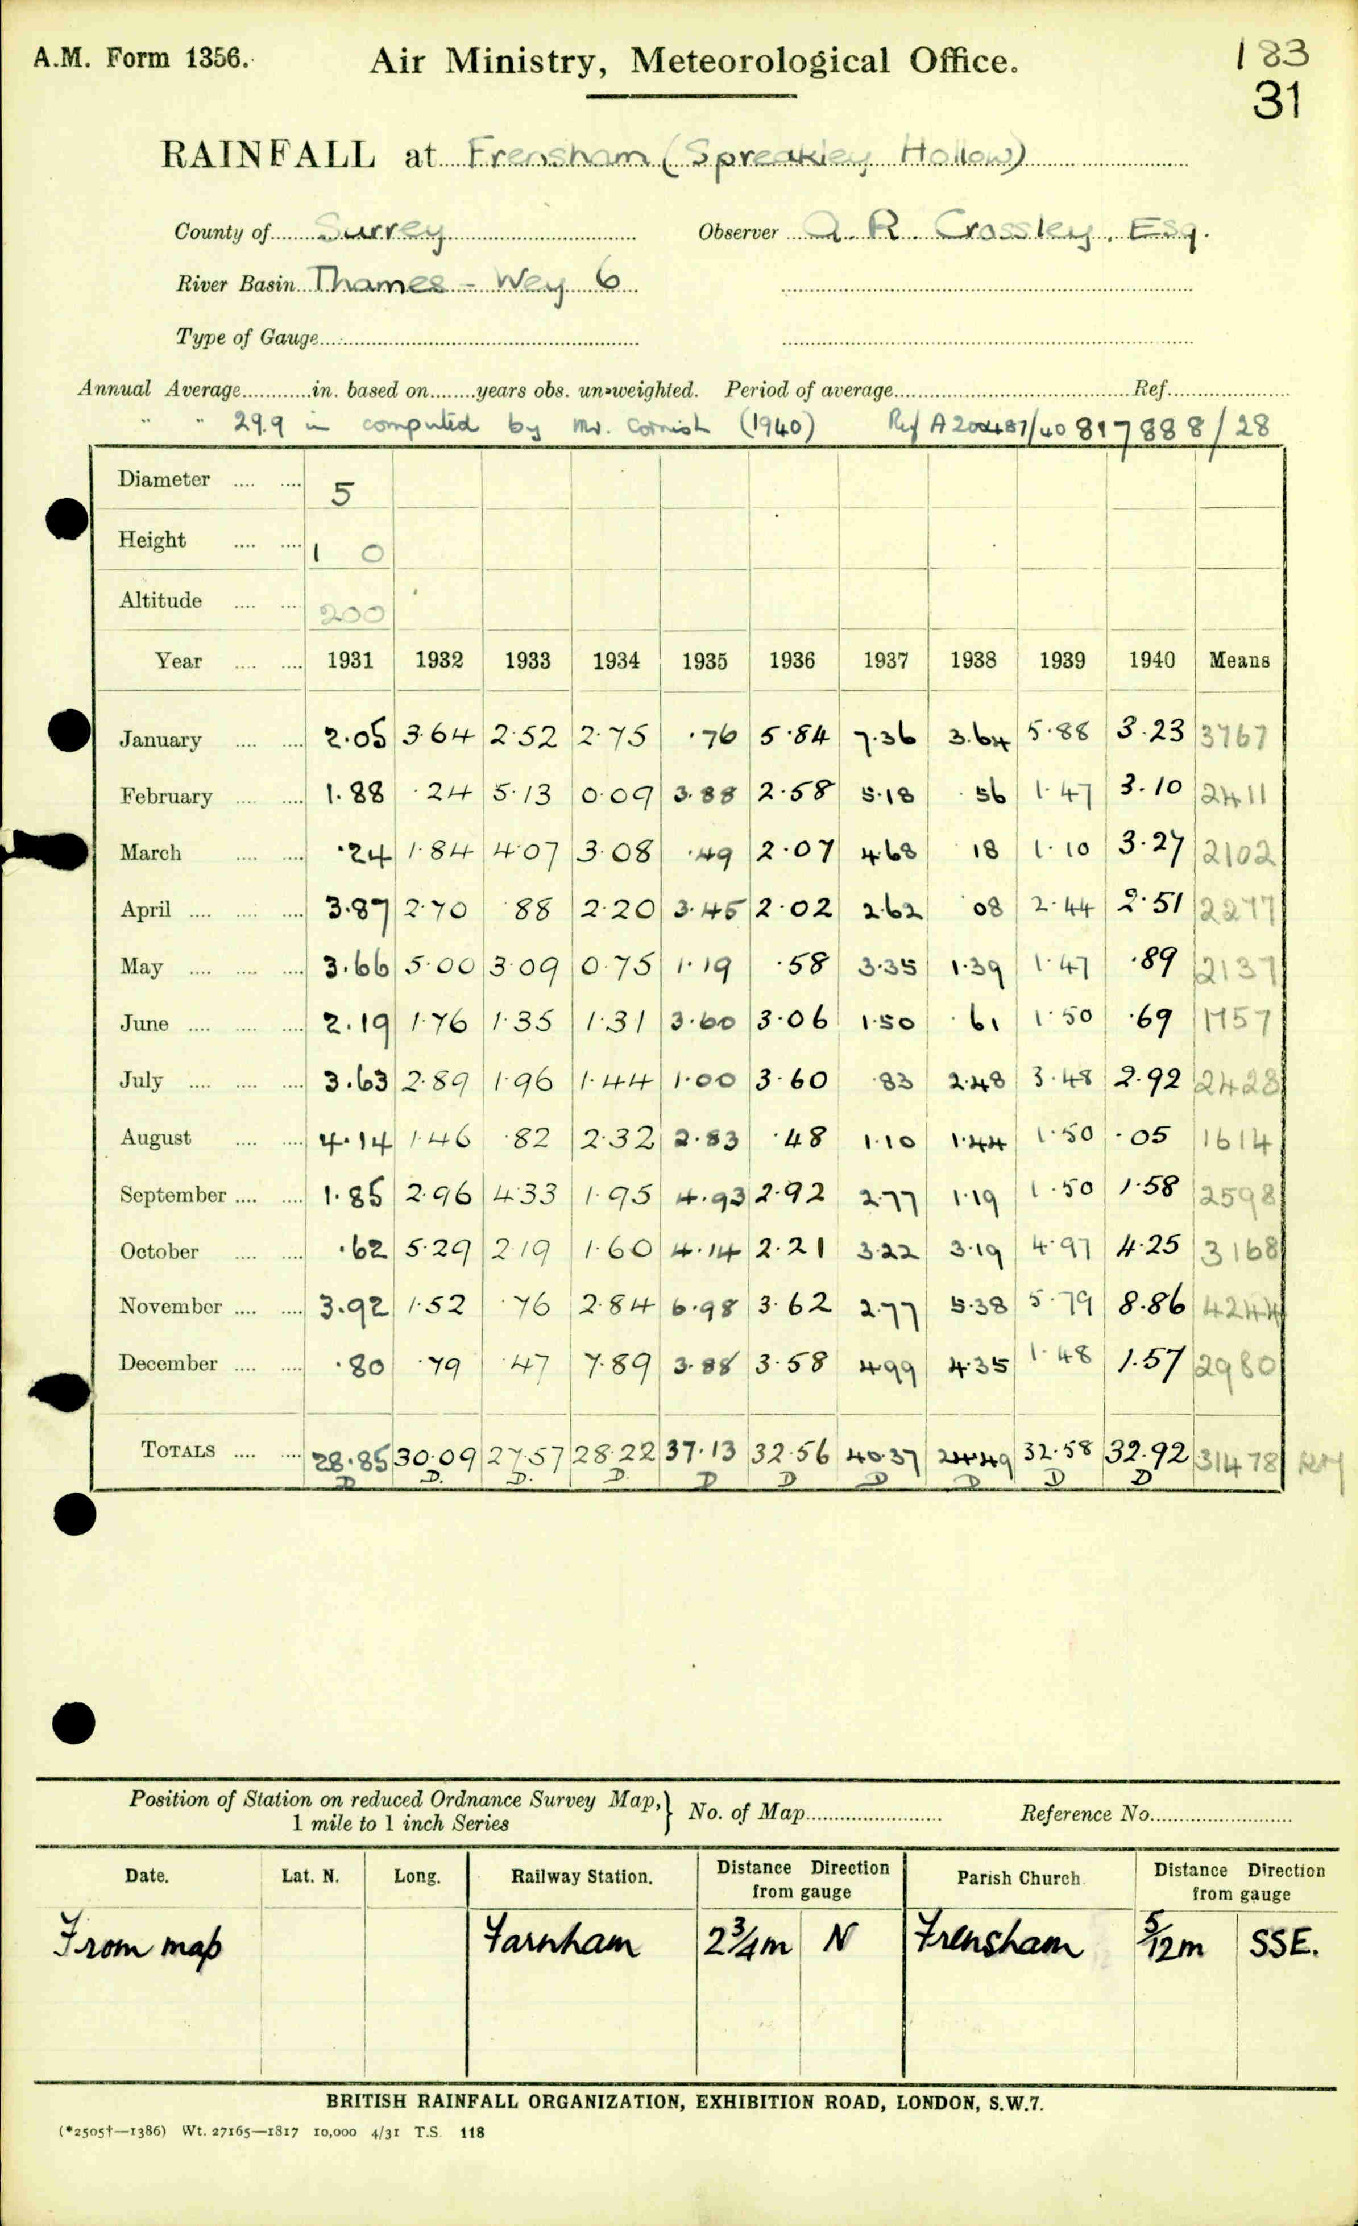 A.M. Form 1356.
Air Ministry, Meteorological Office.
183
31
RAINFALL at Frensham (Spreakley Hollow)
County of Surrey Observer A. R. Crossley, Esq.
River Basin Thames - Wey 6
Type of Gauge
Annual Average in. based on years obs. un-weighted. Period of average Ref.
" " 29.9 in computed by Mr. Cornish (1940) Ref 817888/28
Diameter 5
Height 1 0
Altitude 200
Year 1931 1932 1933 1934 1935 1936 1937 1938 1939 1940 Means
January 2.05 3.64 2.52 2.75 .76 5.84 7.36 3.64 5.88 3.23 3767
February 1.88 .24 5.13 0.09 3.88 2.58 5.18 .56 1.47 3.10 2411
March .24 1.84 4.07 3.08 .49 2.07 4.68 18 1.10 3.27 2102
April 3.87 2.70 .88 2.20 3.45 2.02 2.62 08 2.44 2.51 2277
May 3.66 5.00 3.09 0.75 1.19 .58 3.35 1.39 1.47 .89 2137
June 2.19 1.76 1.35 1.31 3.60 3.06 1.50 .61 1.50 .69 1757
July 3.63 2.89 1.96 1.44 1.00 3.60 .83 2.48 3.48 2.92 2423
August 4.14 1.46 .82 2.32 2.83 .48 1.10 1.44 1.50 .05 1614
September 1.85 2.96 4.33 1.95 4.93 2.92 2.77 1.19 1.50 1.58 2598
October .62 5.29 2.19 1.60 4.14 2.21 3.22 3.19 4.97 4.25 3168
November 3.92 1.52 .76 2.84 6.98 3.62 2.77 5.38 5.79 8.86 4244
December .80 .79 .47 7.89 3.88 3.58 4.99 4.35 1.48 1.57 2980
TOTALS 28.85 30.09 27.57 28.22 37.13 32.56 40.37 24.49 32.58 32.92 31478
D D. D. D. D D D D D D
Position of Station on reduced Ordnance Survey Map, } No. of Map Reference No.
1 mile to 1 inch Series
Date. Lat. N. Long. Railway Station. Distance Direction from gauge Parish Church Distance Direction from gauge
From map Farnham 2¾m N Frensham 5/12m SSE.
BRITISH RAINFALL ORGANIZATION, EXHIBITION ROAD, LONDON, S.W.7.
(*2505†—1386) Wt. 27165—1817 10,000 4/31 T.S. 118